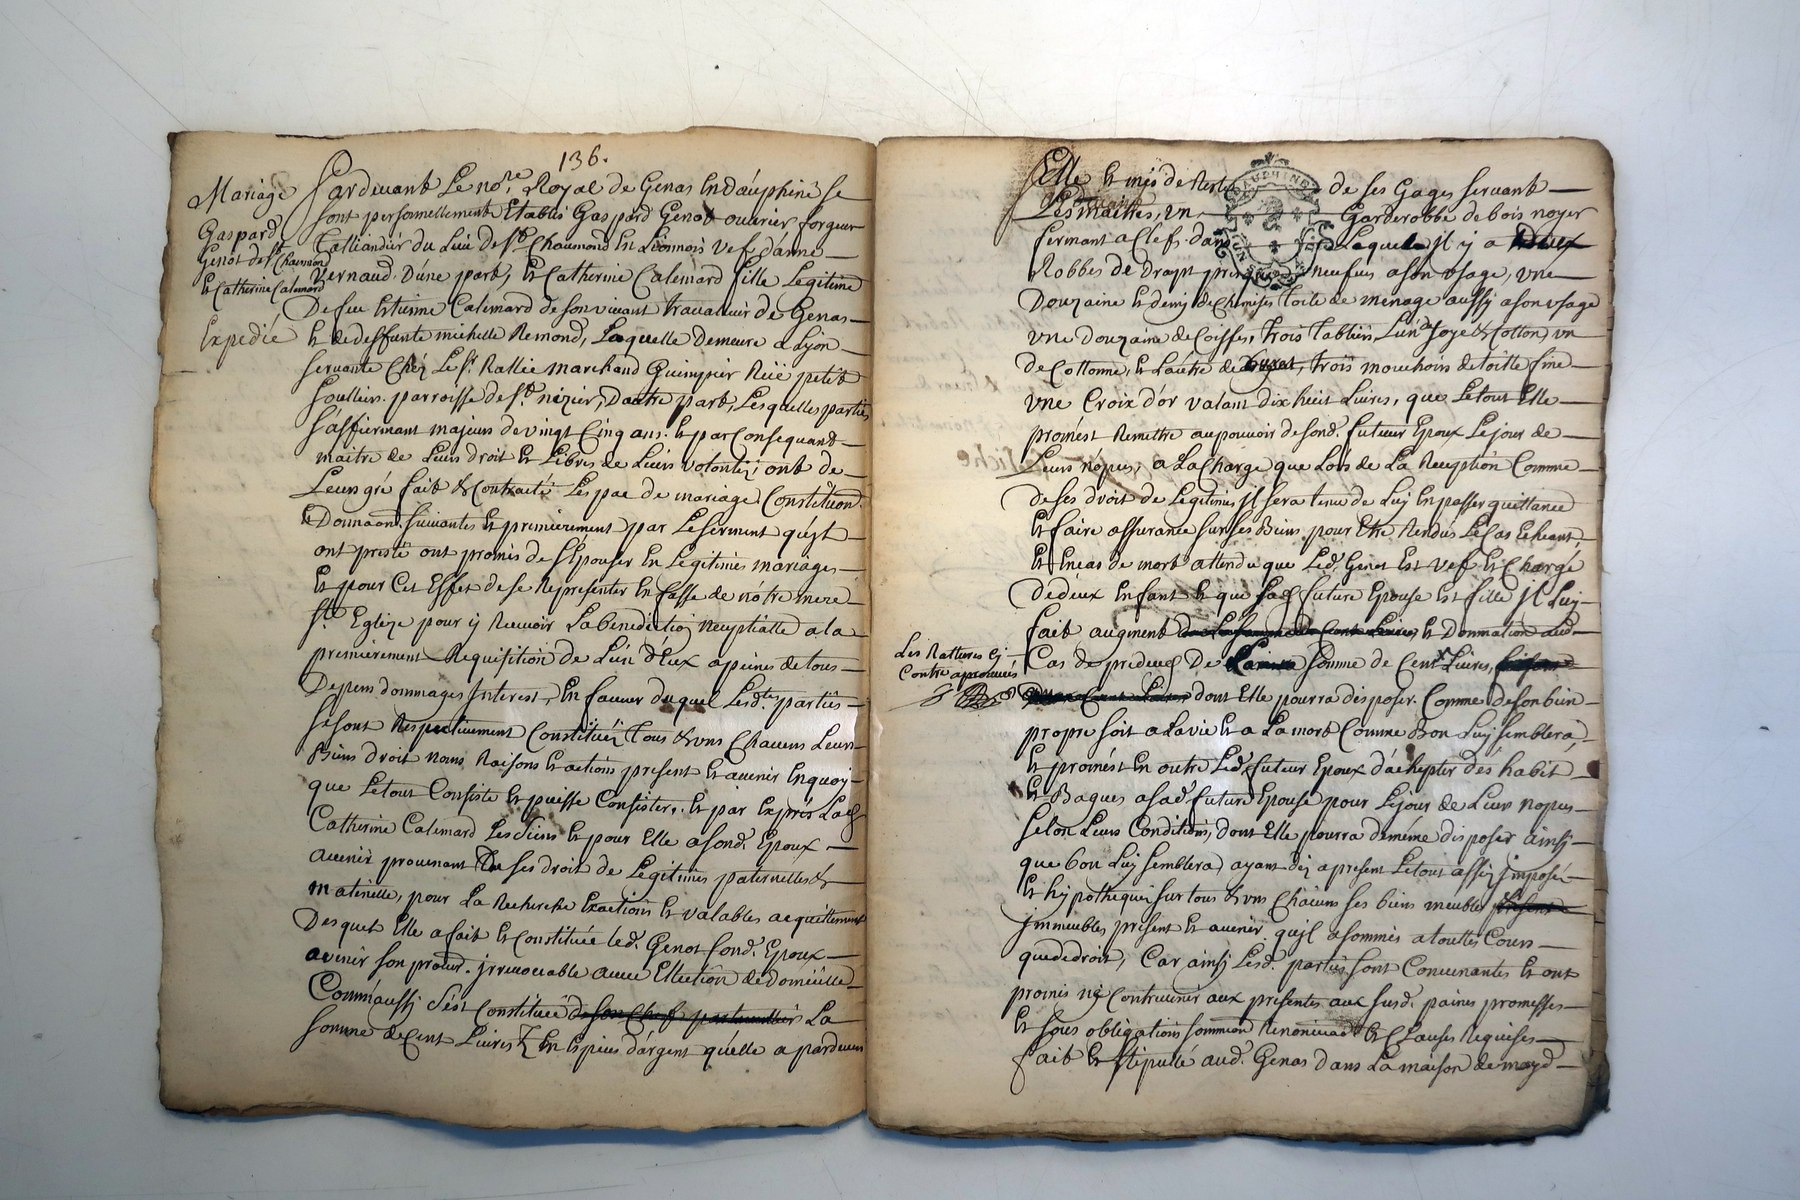 136.
Mariage
Gaspard
Genot de St Chaumond
et Catherine Calemard
Expedié
Pardevant Le nore. Royal de Genas En dauphiné se
sont personnellement Etablis Gaspard Genot ouvrier forgeur
Talliandier du Lieu de St Chaumond En Lionnois vef danne
vernaud. D'une part, Et Catherine Calemard fille Legitime
De feu Etienne Calemard de son vivant travailleur de Genas
Et de deffunte michelle Remond, Laquelle Demeure a Lyon
servante Chéz Le Sr. Rallié marchand Guimpier Rüe petit
Soullier. parroisse de St. nizier, Dautre part, Lesquelles parties
S'affirmant majeurs de vingt Cinq ans. Et par Consequand
maitre de Leurs droit Et Libres de Leurs volontéz ont de
Leurs gré fait & Contracté Les pac de mariage Constitution
Et Donnaon. suivantes Et premierement par Le serment qu'ejl
ont presté ont promis de s'Epouser En Legitimes mariages
Et pour Cet Effet de se Representer En fasse de nôtre mere
Ste. Eglize pour ij Recevoir La benediction nuptialle a la
premierement Requisition de L'un d'Eux a peines de tous
Depens dommages Interest, En faveur duquel Lesd.tes parties
se sont Respectivement Constituéz Tous & uns Chacuns Leurs
Biens droit noms Raisons Et actions present Et avenir En quoy
que Le tout Consiste Et puisse Consister. Et par Exprés Lad
Catherine Calemard Les siens Et pour Elle a sond. Epoux
avenir provenant De ses droit de Legitimes paternelles &
maternelle, pour La Recherche Exactions Et valables acquittement
Desquet Elle a fait Et Constituée led. Genot sond. Epoux
avenir son procur. jrrevocable avec Ellection de domicille
Comm'aussy S'est Constituée de son Chef particullier La
somme de Cent Livres En Espéces d'argent qu'elle a pardevers
Elle Et mis de Reste de ses Gages servant
Les maitres, un Garderobbe de bois noyer
fermant a Clef. dans Lequel jl ij a deux
Robbes de Drapt presque neufves a son usage, une
Douzaine Et demy de Chemises toile de menage aussy a son usage
une douzaine de Coiffes, trois Tabliers, L'un de Soye & Cotton, un
de Cottonne, Et L'autre de trois mouchoirs de toille fine
une Croix d'or valant dix huit Livres, que Le tout Elle
promést Remettre au pouvoir de sond. futeur Epoux Le jour de
Leurs nôpces, a La Charge que Lors de La Reception Comme
de ses droit de Legitimes jl sera tenu de Luy En passer quittance
Et faire assurance sur ses Biens pour Etre Rendus Le Cas Echeant,
Et En cas de mort attendu que Led. Genot Est vef Et Chargé
Dedeux Enfant Et que sad future Epouse Est fille jl Luy
fait augment de La somme de Cent Livres Et Donnation aud.
Cas de predeces De La somme de Cent Livres,
dont Elle pourra disposer. Comme de son bien
propre soit a La vie Et a La mort Comme Bon Luy semblera,
Et promést En outre Led. futeur Epoux d'achepter dés habit
Et Bagues a sad. future Epouse pour Le jour de Leurs nopces
selon Leurs Conditions, dont Elle pourra de méme disposer ainsy
que bon Luy semblera, ayant déz apresent Le tout assis jmposé
Et hypothequé sur tous & uns Chacuns ses biens meubles present
jmmeubles present Et avenir qu'jl a sommés a touttes Cours
que de droit, Car ainsy Lesd. parties sont Convenantes Et ont
promis ny Contrevenir aux presentes aux susd. paines promesses
Et sous obligations soummon Renonciaon Et Clauses Requises
fait Et stipullé aud. Genas Dans La maison de moyd
Les Ratteures Cy
Contre aprouvés